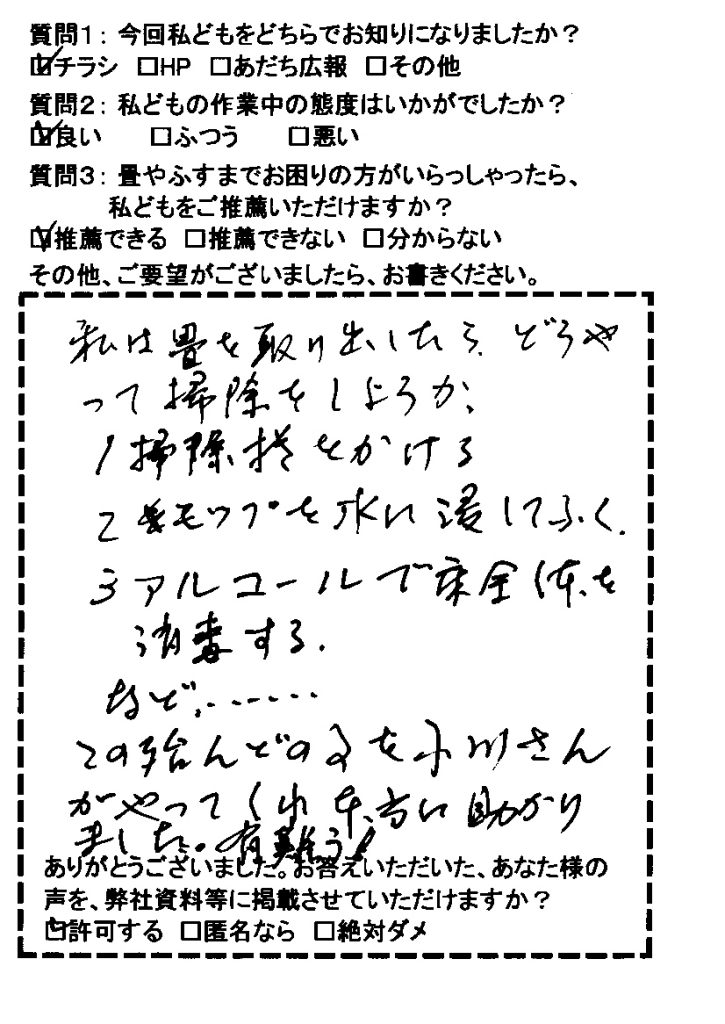 質問1：今回私どもをどちらでお知りになりましたか？
☑チラシ □HP □あだち広報 □その他
質問2：私どもの作業中の態度はいかがでしたか？
☑良い □ふつう □悪い
質問3：畳やふすまでお困りの方がいらっしゃったら、
私どもをご推薦いただけますか？
☑推薦できる □推薦できない □分からない
その他、ご要望がございましたら、お書きください。
私は畳を取り出したら、どうや
って掃除をしようか、
1 掃除機をかける
2 モップを水に浸してふく．
3 アルコールで床全体を
消毒する．
など，‥‥‥
この殆んどの事を小川さん
がやってくれ本当に助かり
ました。有難う！
ありがとうございました。お答えいただいた、あなた様の
声を、弊社資料等に掲載させていただけますか？
☑許可する □匿名なら □絶対ダメ